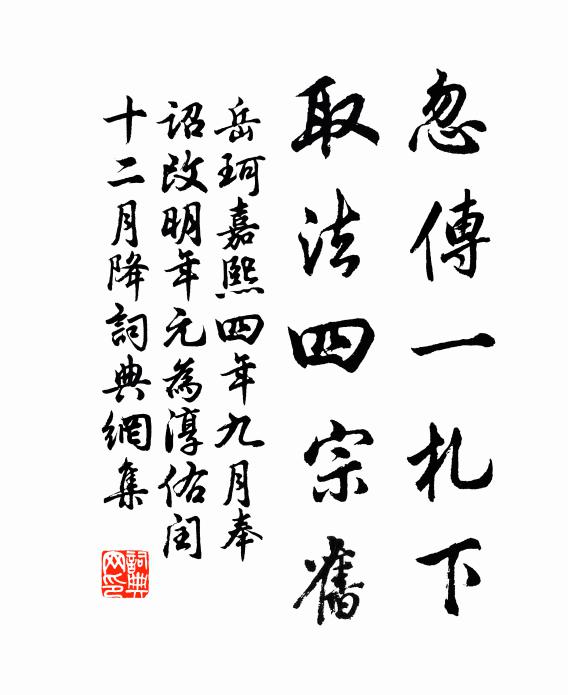 忽傳一札下
取法四宗舊
岳珂嘉熙四年九月奉
詔改明年元為淳佑閏
十二月降詞典網集
詞典網印